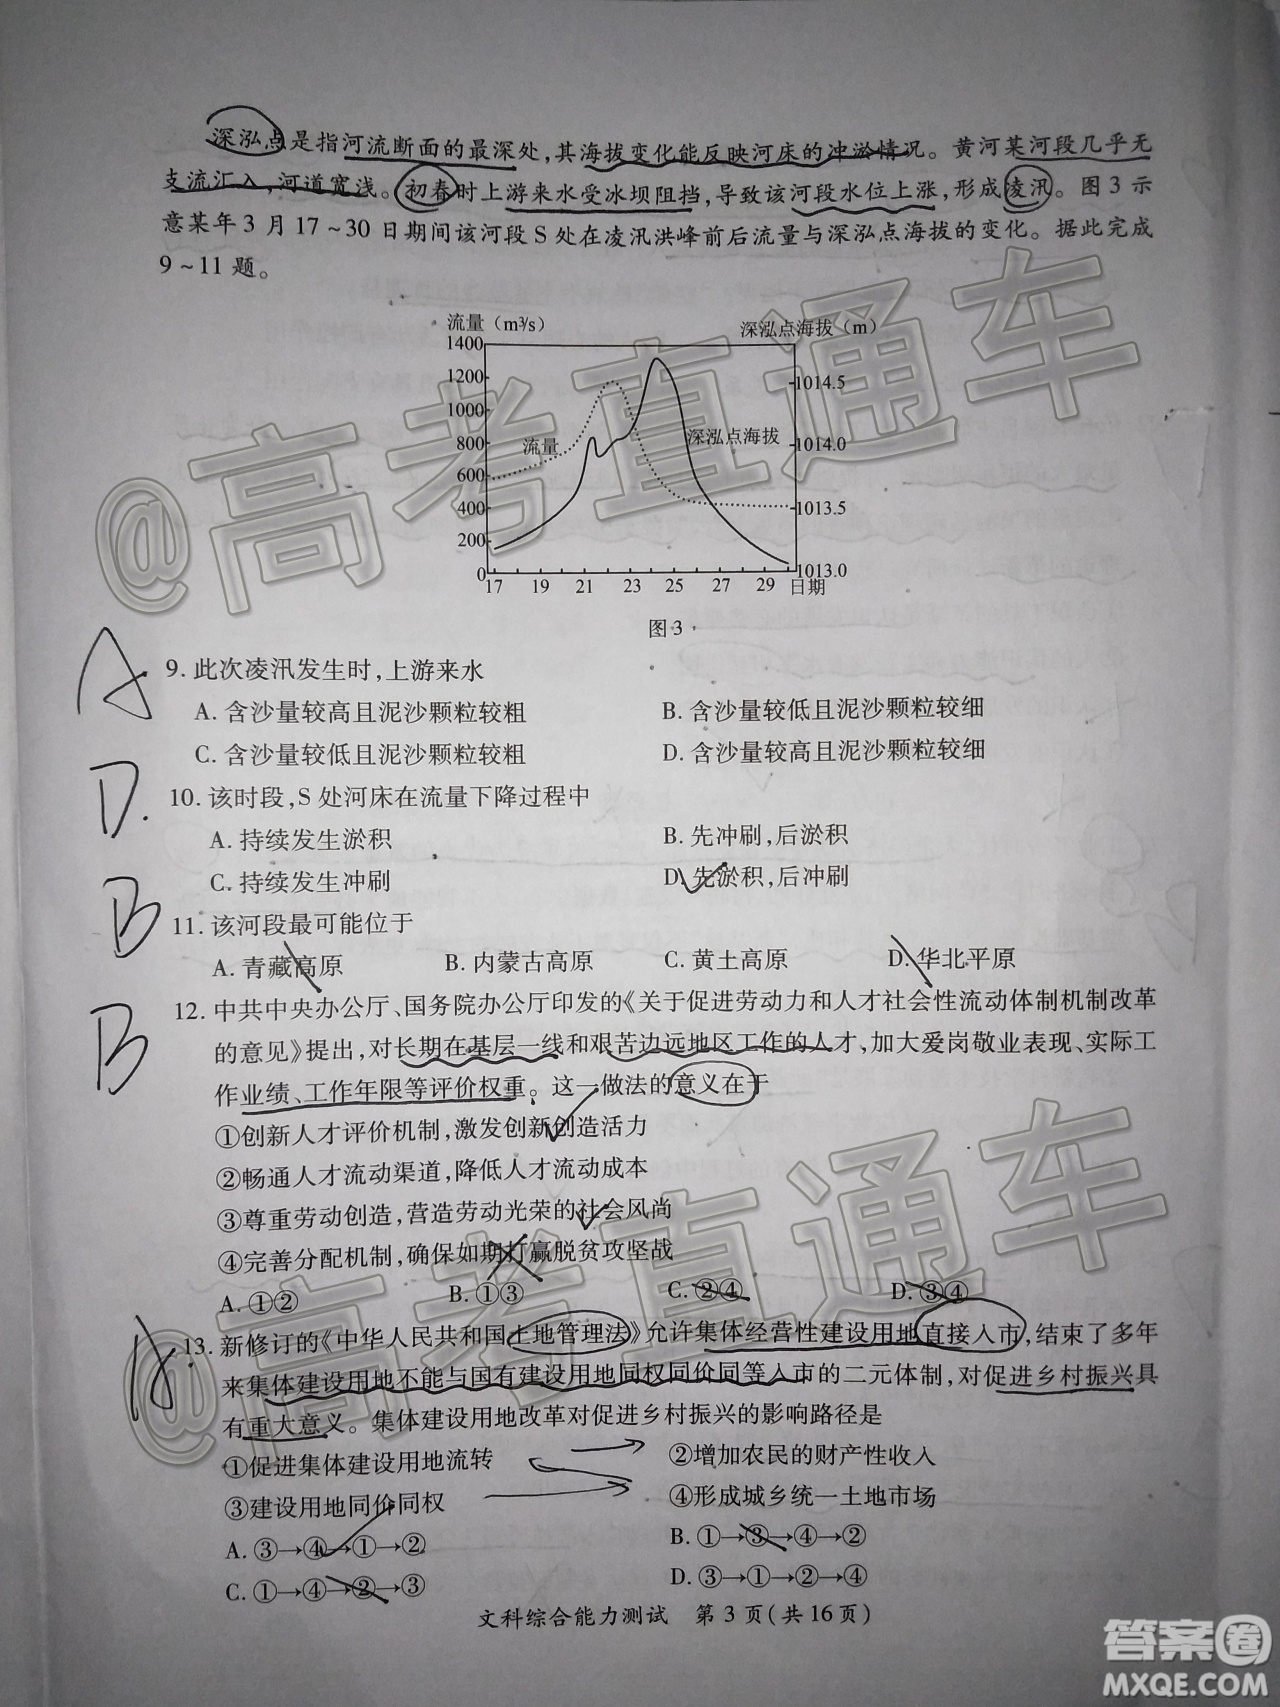 深泓点是指河流断面的最深处,其海拔变化能反映河床的冲淤情况。黄河某河段几乎无
支流汇入,河道宽浅。初春时上游来水受冰坝阻挡,导致该河段水位上涨,形成凌汛。图3示
意某年3月17~30日期间该河段S处在凌汛洪峰前后流量与深泓点海拔的变化。据此完成
9~11题。
流量(m³/s) 深泓点海拔(m)
1400
1200 1014.5
1000
800 1014.0
600
400 1013.5
200
0 1013.0
流量
深泓点海拔
17 19 21 23 25 27 29 日期
图3
A
9. 此次凌汛发生时,上游来水
A. 含沙量较高且泥沙颗粒较粗 B. 含沙量较低且泥沙颗粒较细
C. 含沙量较低且泥沙颗粒较粗 D. 含沙量较高且泥沙颗粒较细
D.
10. 该时段,S处河床在流量下降过程中
A. 持续发生淤积 B. 先冲刷,后淤积
C. 持续发生冲刷 D. 先淤积,后冲刷
B
11. 该河段最可能位于
A. 青藏高原 B. 内蒙古高原 C. 黄土高原 D. 华北平原
B
12. 中共中央办公厅、国务院办公厅印发的《关于促进劳动力和人才社会性流动体制机制改革
的意见》提出,对长期在基层一线和艰苦边远地区工作的人才,加大爱岗敬业表现、实际工
作业绩、工作年限等评价权重。这一做法的意义在于
①创新人才评价机制,激发创新创造活力
②畅通人才流动渠道,降低人才流动成本
③尊重劳动创造,营造劳动光荣的社会风尚
④完善分配机制,确保如期打赢脱贫攻坚战
A. ①② B. ①③ C. ②④ D. ③④
A.
13. 新修订的《中华人民共和国土地管理法》允许集体经营性建设用地直接入市,结束了多年
来集体建设用地不能与国有建设用地同权同价同等入市的二元体制,对促进乡村振兴具
有重大意义。集体建设用地改革对促进乡村振兴的影响路径是
①促进集体建设用地流转 ②增加农民的财产性收入
③建设用地同价同权 ④形成城乡统一土地市场
A. ③→④→①→② B. ①→③→④→②
C. ①→④→②→③ D. ③→①→②→④
文科综合能力测试 第3页(共16页)
@高考直通车
@高考直通车
答案圈
MXQE.COM